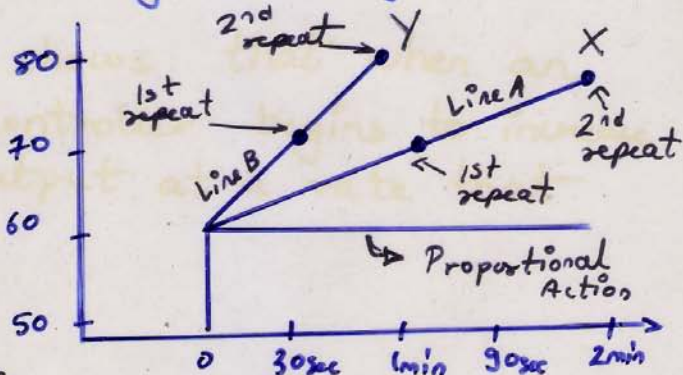 2nd
repeat
Y
X
80
1st
repeat
Line A
2nd
repeat
70
Line B
1st
repeat
60
Proportional
Action
50
0 30sec 1min 90sec 2min